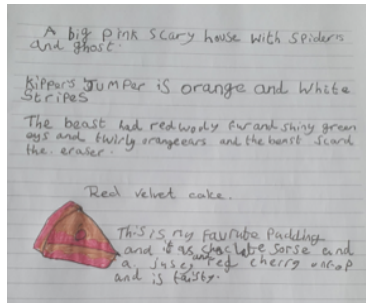 A big pink scary house with spiders
and ghost.
Kipper's Jumper is orange and white
stripes
The beast had red wooly fur and shiny green
eys and twirly orange ears and the beast scard
the. eraser.
Red velvet cake.
This is my favrute pudding
and it as choclate sorse and
a. jusey and red cherry on top
and is tasty.